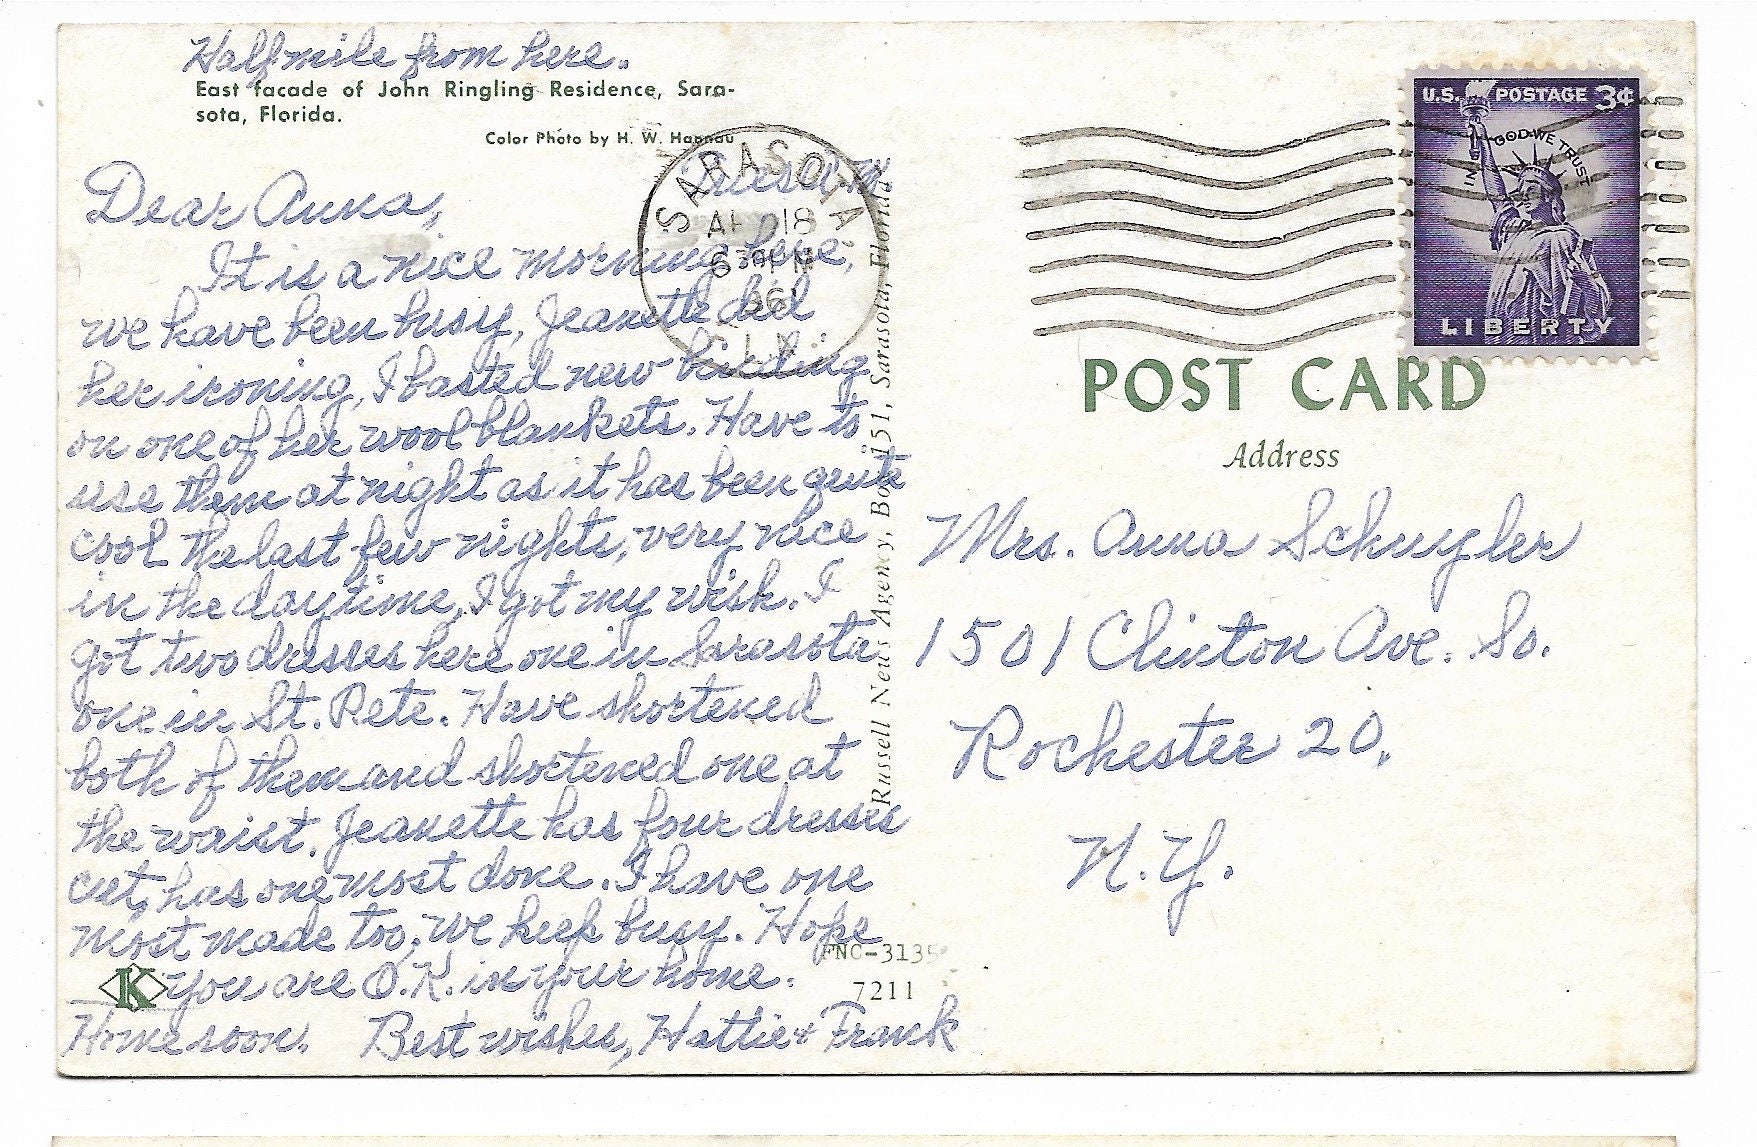 Half mile from here.
East facade of John Ringling Residence, Sara-
sota, Florida.
Color Photo by H. W. Hannau
Dear Anna,
It is a nice morning here,
we have been busy, Jeanette did
her ironing, I basted new binding
on one of her wool blankets. Have to
use them at night as it has been quite
cool the last few nights, very nice
in the daytime, I got my wish. I
got two dresses here one in Sarasota
one in St. Pete. Have shortened
both of them and shortened one at
the waist. Jeanette has four dresses
cut, has one most done. I have one
most made too, we keep busy. Hope
you are O.K. in your home.
Home soon. Best wishes, Hattie & Frank
K
FNC-3135
7211
Russell News Agency, Box 151, Sarasota, Florida
SARASOTA
18
FLA.
U.S. POSTAGE 3¢
IN GOD WE TRUST
LIBERTY
POST CARD
Address
Mrs. Anna Schuyler
1501 Clinton Ave. So.
Rochester 20,
N.Y.